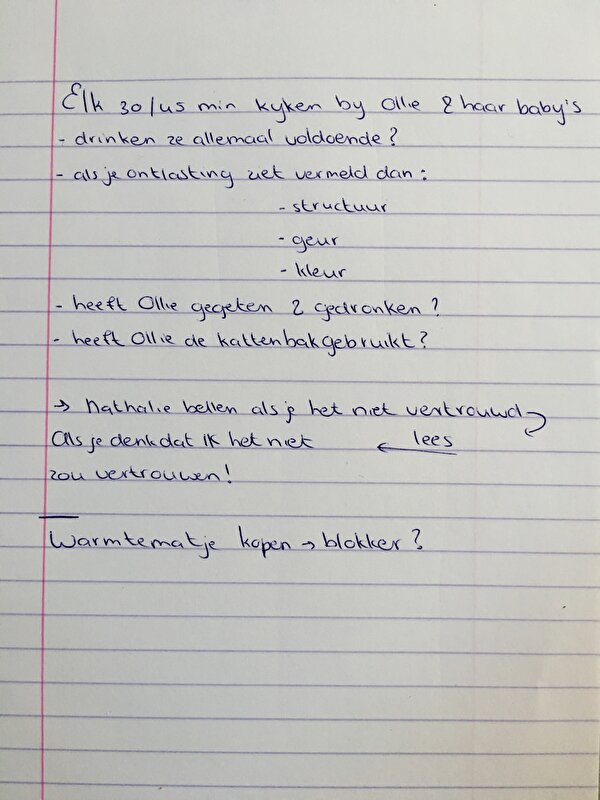 Elk 30/45 min kyken by Ollie & haar baby's
- drinken ze allemaal voldoende?
- als je ontlasting ziet vermeld dan:
- structuur
- geur
- kleur
- heeft Ollie gegeten & gedronken?
- heeft Ollie de kattenbak gebruikt?
→ Nathalie bellen als je het niet vertrouwd
Als je denk dat ik het niet ← lees
zou vertrouwen!
Warmtematje kopen → blokker?